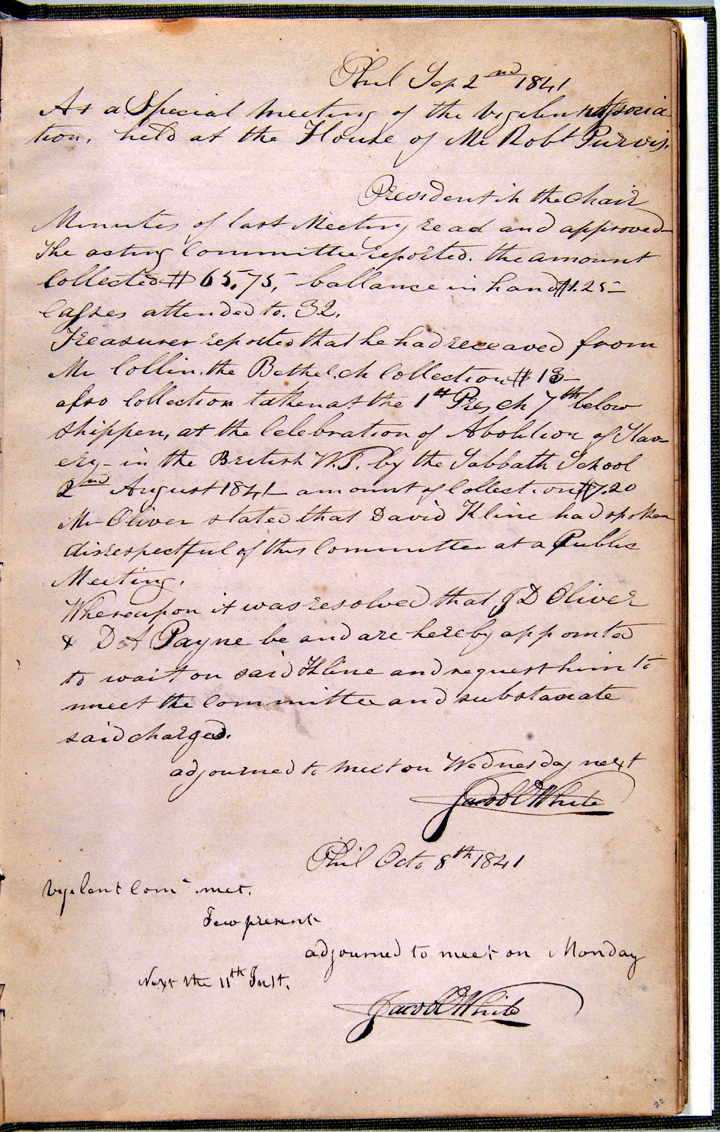 Phil Sep 2nd 1841
At a Special meeting of the Vigilent Assoria
tion, held at the House of Mr Robt Purvis,
President in the chair
Minutes of last Meeting read and approved
The acting Committee reported. the amount
Collected $ 65,75, ballance in hand $1.25
Casses attended to. 32.
Treasurer reported that he had receaved from
Mr Collin. the Bethel. ch Collection $ 13
also Collection taken at the 1st Pres, ch 7th below
Shippen, at the Celebration of Abolition of Slav
ery - in the British W.I. by the Sabbath School
2nd August 1841 - amount of Collection $7.20
Mr Oliver stated that David Kline had spoken
disrespectful of this Committee at a Public
Meeting.
Whereupon it was resolved that J D Oliver
& D A Payne be and are hereby appointed
to wait on said Kline and request him to
meet the Committee and substanciate
said charged.
adjourned to meet on Wednesday next
Jacob C White
Phil Octo 8th 1841
Vigelant Com met.
Few present
adjourned to meet on Monday
Next the 11th Inst.
Jacob C White
22